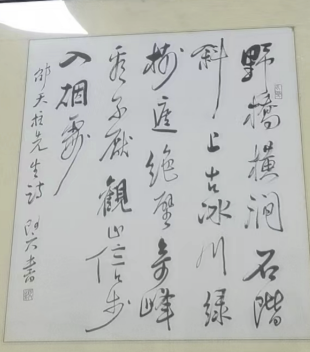 野橋橫澗石階
斜上古冰川綠
樹遮絕壁奇峰
看不厭觀山信步
入烟霞
邵天柱先生詩 啟功書